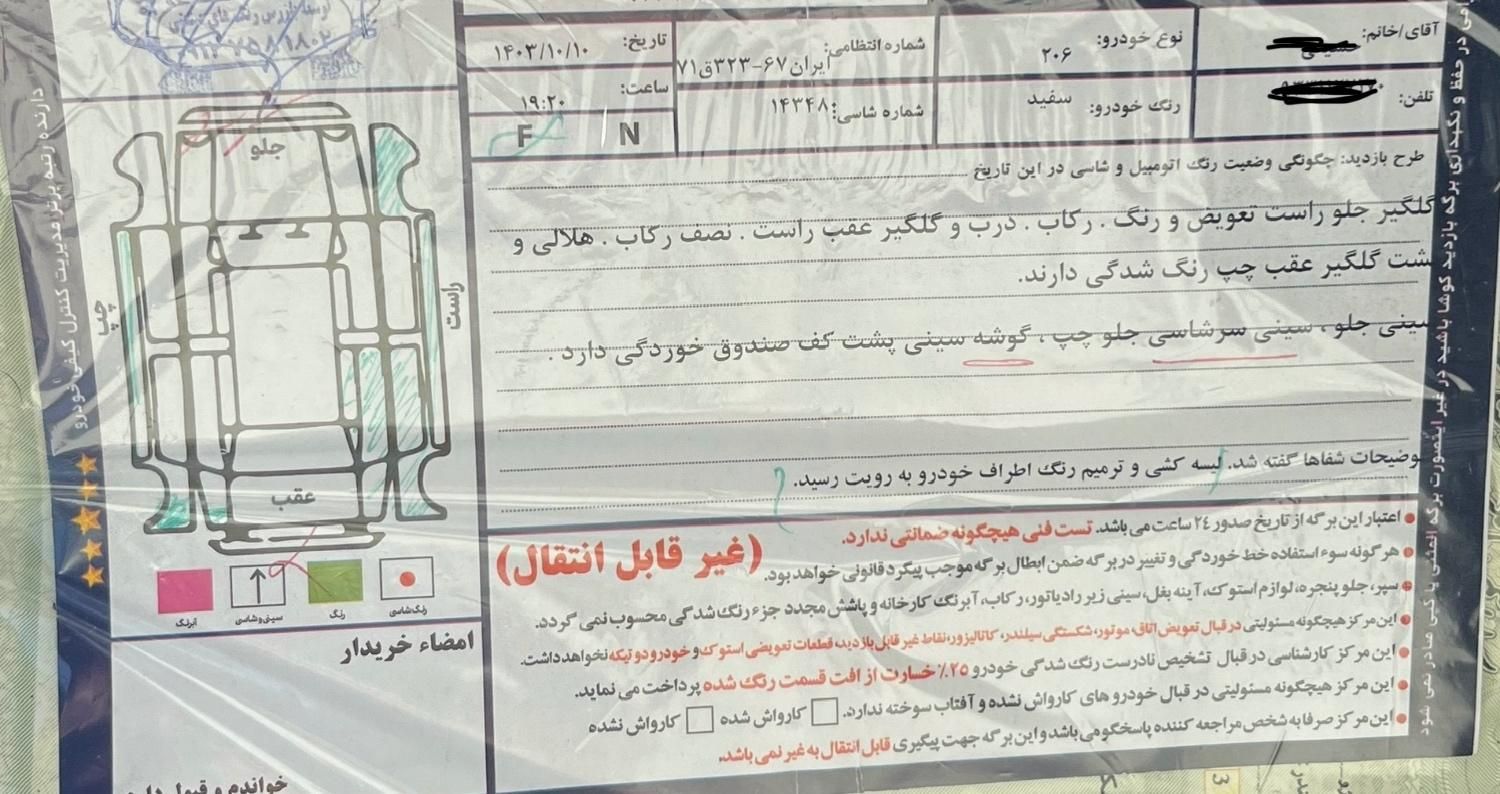 آقای/خانم:
نوع خودرو: ۲۰۶
شماره انتظامی: ایران ۶۷-۳۲۳ق۷۱
تاریخ: ۱۴۰۳/۱۰/۱۰
تلفن:
رنگ خودرو: سفید
شماره شاسی: ۱۴۳۴۸
ساعت: ۱۹:۲۰
N F
طرح بازدید: چگونگی وضعیت رنگ اتومبیل و شاسی در این تاریخ
گلگیر جلو راست تعویض و رنگ . رکاب . درب و گلگیر عقب راست . نصف رکاب . هلالی و
شت گلگیر عقب چپ رنگ شدگی دارند.
سینی جلو ، سینی سرشاسی جلو چپ ، گوشه سینی پشت کف صندوق خوردگی دارد .
وضیحات شفاها گفته شد. لیسه کشی و ترمیم رنگ اطراف خودرو به رویت رسید.
اعتبار این برگه از تاریخ صدور ۲۴ ساعت می باشد. تست فنی هیچگونه ضمانتی ندارد.
هر گونه سوء استفاده خط خوردگی و تغییر در برگه ضمن ابطال برگه موجب پیگرد قانونی خواهد بود.
(غیر قابل انتقال)
سپر، جلو پنجره، لوازم استوک، آینه بغل، سینی زیر رادیاتور، رکاب، آبرنگ کارخانه و پاشش مجدد جزء رنگ شدگی محسوب نمی گردد.
این مرکز هیچگونه مسئولیتی در قبال تعویض اتاق، موتور، شکستگی سیلندر، کاتالیزور، نقاط غیر قابل بازدید، قطعات تعویضی استوک و خودرو دو تیکه نخواهد داشت.
این مرکز کارشناسی در قبال تشخیص نادرست رنگ شدگی خودرو ۲۵٪ خسارت از افت قسمت رنگ شده پرداخت می نماید.
این مرکز هیچگونه مسئولیتی در قبال خودرو های کارواش نشده و آفتاب سوخته ندارد. کارواش شده کارواش نشده
این مرکز صرفا به شخص مراجعه کننده پاسخگو می باشد و این برگه جهت پیگیری قابل انتقال به غیر نمی باشد.
جلو
چپ
راست
عقب
رنگ شاسی
رنگ
سینی و شاسی
آبرنگ
امضاء خریدار
خواندم و قبول دارم
دارنده رتبه برتر مدیریت کنترل کیفی خودرو
در حفظ و نگهداری برگه بازدید کوشا باشید در غیر اینصورت برگه المثنی یا کپی صادر نمی شود
3